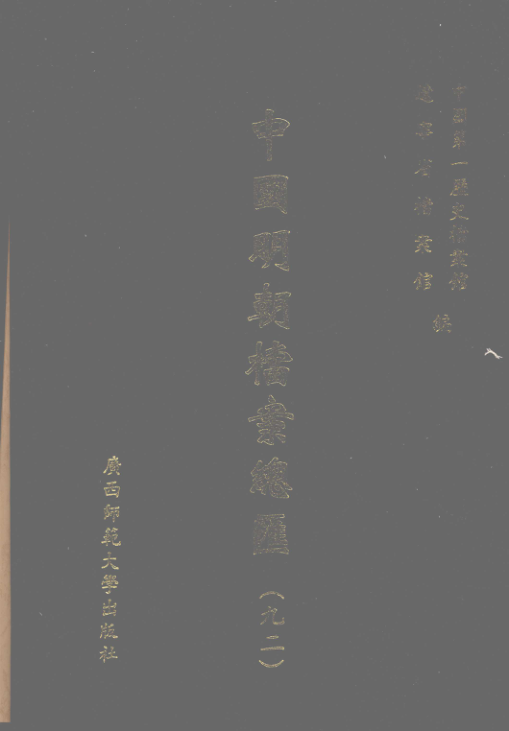 中國第一歷史檔案館
遼寧省檔案館
編
中國明朝檔案總匯
（九二）
廣西師範大學出版社